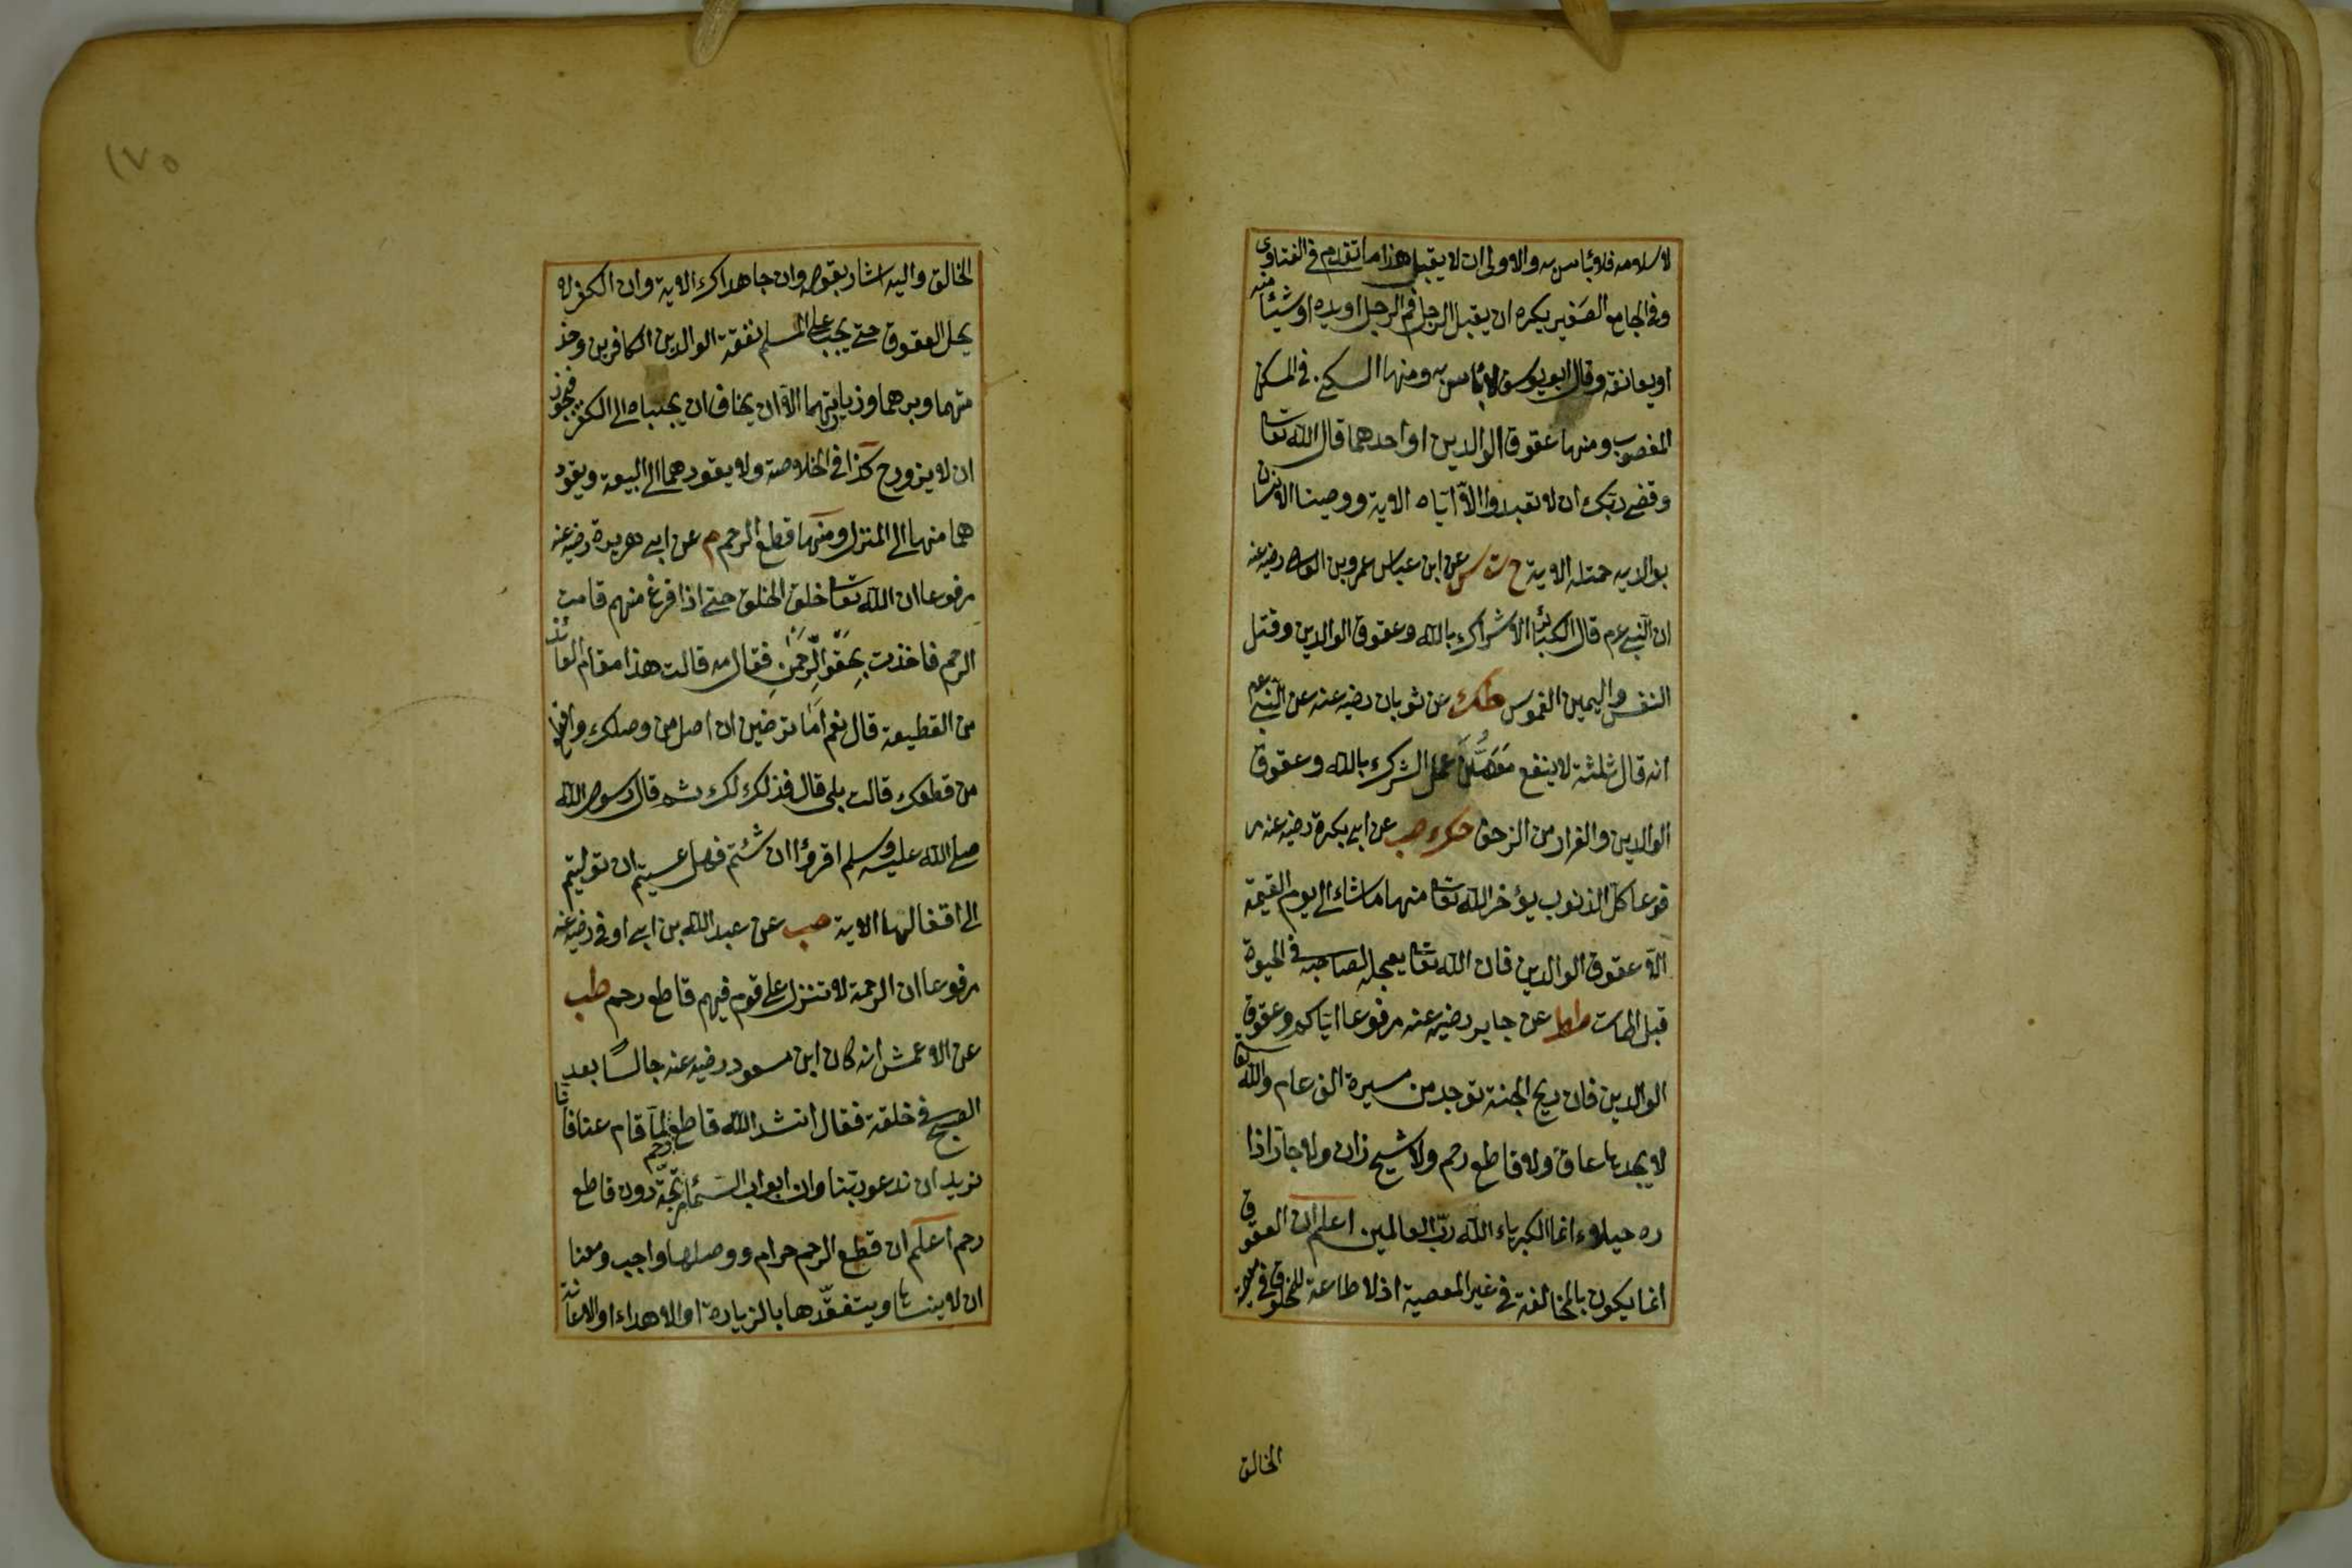 لاسلامه فلا بأس به والاولى ان لا يقبل هذا ما تقدم في الفتاوى
وفي الجامع الصغير يكره ان يقبل الرجل فم الرجل او يده او شيئا منه
او يعانقه وقال ابو يوسف لا بأس به ومنها السكنى في المسكن
المغصوب ومنها عقوق الوالدين او احدهما قال الله تعا
وقضى ربك ان لا تعبدوا الا اياه الاية ووصينا الانسان
بوالديه حملته الاية خ ت س عن ابن عباس عمرو بن العاص رضيه عنه
ان النبي عم قال الكبائر الاشراك بالله وعقوق الوالدين وقتل
النفس واليمين الغموس طك عن ثوبان رضيه عنه عن النبي عم
انه قال ثلثة لا ينفع معهن عمل الشرك بالله وعقوق
الوالدين والفرار من الزحف حك صب عن ابي بكرة رضيه عنه مر
فوعا كل الذنوب يؤخر الله تعا منها ما شاء الى يوم القيمة
الا عقوق الوالدين فان الله تعا يعجله لصاحبه في الحيوة
قبل الممات طط عن جابر رضيه عنه مرفوعا اياكم وعقوق
الوالدين فان ريح الجنة توجد من مسيرة الف عام والله تعا
لا يجدها عاق ولا قاطع رحم ولا شيخ زان ولا جار ازا
ره خيلاء انما الكبرياء الله رب العالمين اعلم ان العقوق
انما يكون بالمخالفة في غير المعصية اذ لا طاعة للمخلوق في معصية
الخالق
١٧٥
الخالق واليه اشار بقوله وان جاهداك الاية وان الكفر لا
يحل العقوق حتى يجب على المسلم نفقة الوالدين الكافرين وخد
متهما وبرهما وزيارتهما الا ان يخاف ان يجلباه الى الكفر فيجوز
ان لا يزورح كذا في الخلاصة ولا يقودهما الى البيعة ويقود
هما منها الى المنزل ومنها قطع الرحم م عن ابي هريرة رضيه عنه
مرفوعا ان الله تعا خلق الخلق حتى اذا فرغ منهم قامت
الرحم فاخذت بحقو الرحمن فقال مه قالت هذا مقام العائذ
من القطيعة قال نعم اما ترضين ان اصل من وصلك واقطع
من قطعك قالت بلى قال فذلك لك ثم قال رسول الله
صلى الله عليه وسلم اقرؤا ان شئتم فهل عسيتم ان توليتم
الى اقفالها الاية صب عن عبد الله بن ابي اوفى رضيه عنه
مرفوعا ان الرحمة لا تنزل على قوم فيهم قاطع رحم طب
عن الاعمش انه كان ابن مسعود رضيه عنه جالسا بعد
الصبح في خلقة فقال انشد الله قاطع رحم لما قام عنا فانا
نريد ان ندعو ربنا وان ابواب السماء مرتجة دون قاطع
رحم اعلم ان قطع الرحم حرام ووصلها واجب ومعنا
ان لا ينساها ويتفقدها بالزيارة او الاهداء او الاعانة